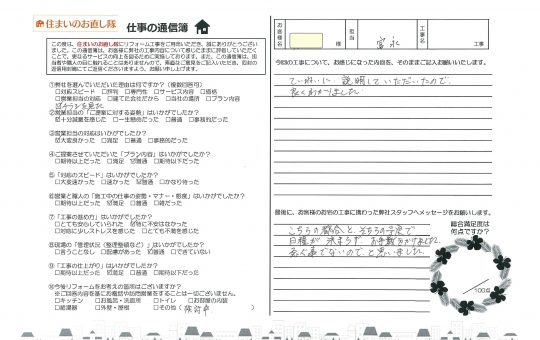 住まいのお直し隊 仕事の通信簿
この度は、住まいのお直し隊にリフォーム工事をご用命いただき、誠にありがとうござい
ました。この通信簿は、お客様に弊社の工事内容について感じたままに評価していただく
ことで、更なるサービスの向上を図るために実施しております。また、この通信簿は、担
当者や職人の目に触れることはありませんので、率直なご意見をご記入いただき、同封の
返信用封筒にてご返送くださいますよう、お願い申し上げます。
①弊社を選んでいただいた理由は何ですか？（複数回答可）
□対応スピード □評判 □専門性 □サービス内容 □価格
□営業担当の対応 □建てた会社だから □当社の場所 □プラン内容
②営業担当の「ご提案に対する姿勢」はいかがでしたか？
☑十分誠意を感じた □一生懸命だった □普通 □事務的だった
③営業担当の対応はいかがでしたか？
☑大変良かった □満足 □普通 □事務的だった
④ご提案させていただいた「プラン内容」はいかがでしたか？
□期待以上だった □満足 ☑普通 □期待以下だった
⑤「対応のスピード」はいかがでしたか？
□大変速かった □速かった ☑普通 □かなり待った
⑥営業と職人の「施工中の仕事の姿勢・マナー・態度」はいかがでしたか？
□期待以上だった □満足 ☑普通 □期待以下だった
⑦「工事の進め方」はいかがでしたか？
□とても安心していられた ☑特に不安はなかった
□対応に少しストレスを感じた □とても不満を感じた
⑧現場の「管理状況（整理整頓など）」はいかがでしたか？
□言うことなし □配慮があった ☑普通 □できていない
⑨「工事の仕上がり」はいかがでしたか？
□期待以上だった ☑満足 □普通 □期待以下だった
⑩今後リフォームをお考えの箇所はございますか？
※ご回答内容を基にお電話や訪問営業をすることは一切ございません。
□キッチン □お風呂・洗面所 □トイレ □お部屋の内装
□給湯器 □外壁・屋根 □その他（
お客様名 様 担当 富永 工事名 工事
今回の工事について、お感じになった内容を、そのままご記入お願いいたします。
ていねいに 説明していただいたので、
良くわかりました。
最後に、お客様のお宅の工事に携わった弊社スタッフへメッセージをお願いします。
こちらの都合と そちらの予定で
日程が 決まらず お手数おかけしました。
と思いました。
総合満足度は
何点ですか？
/100点